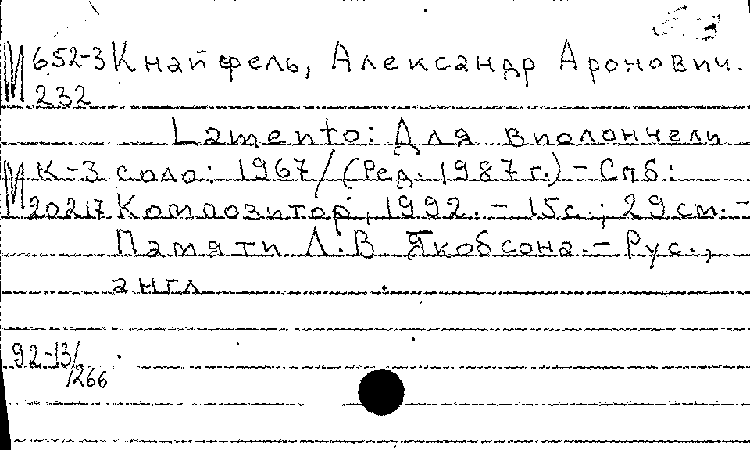 М 652-3 Кнайфель, Александр Аронович.
232
Lamento: Для виолончели
М К-3 соло: 1967/(Ред. 1987 г.) - Спб:
20217 Композитор, 1992. - 15с.; 29 см. -
Памяти Л.В Якобсона. - Рус.,
англ
92-13/266